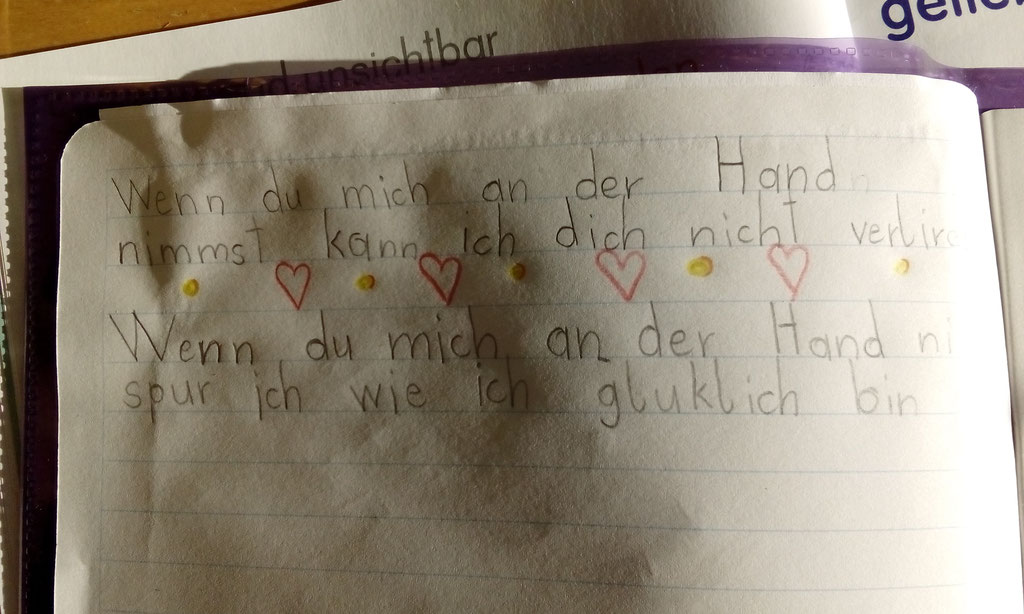 unsichtbar
Wenn du mich an der Hand
nimmst kann ich dich nicht verlire
Wenn du mich an der Hand ni
spur ich wie ich gluklich bin